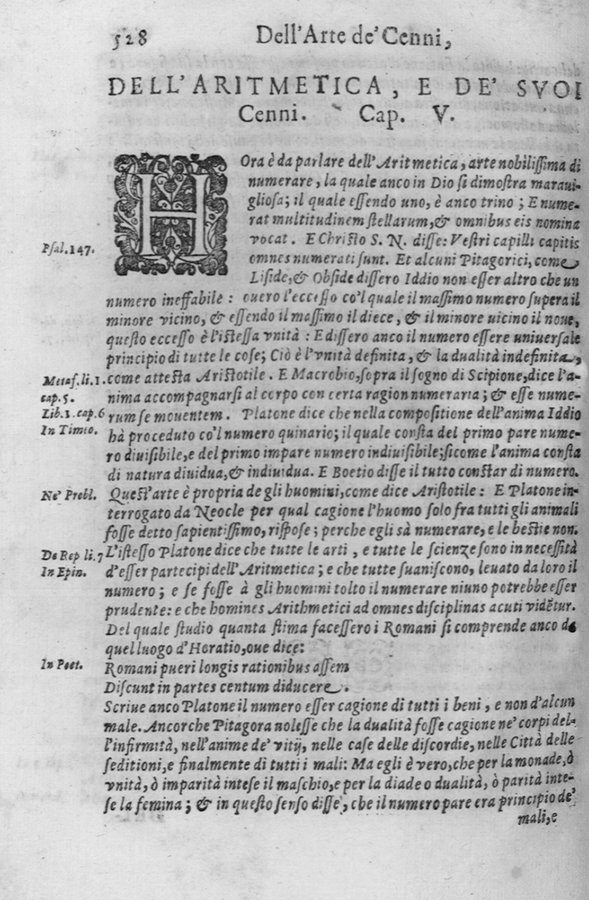 528 Dell'Arte de' Cenni,
DELL'ARITMETICA, E DE' SVOI
Cenni. Cap. V.
HOra è da parlare dell'Aritmetica, arte nobilissima di
numerare, la quale anco in Dio si dimostra maraui-
gliosa; il quale essendo uno, è anco trino; E nume-
rat multitudinem stellarum, & omnibus eis nomina
vocat. E Christo S. N. disse: Vestri capilli capitis
Psal. 147.
omnes numerati sunt. Et alcuni Pitagorici, come
Liside, & Obside dissero Iddio non esser altro che un
numero ineffabile: ouero l'eccesso co'l quale il massimo numero supera il
minore vicino, & essendo il massimo il diece, & il minore uicino il noue,
questo eccesso è l'istessa vnità: E dissero anco il numero essere uniuersale
principio di tutte le cose; Ciò è l'vnità definita, & la dualità indefinita,
Metaf. li. 1.
cap. 5.
come attesta Aristotile. E Macrobio, sopra il sogno di Scipione, dice l'a-
nima accompagnarsi al corpo con certa ragion numeraria; & esse nume-
Lib. 1. cap. 6
rum se mouentem. Platone dice che nella compositione dell'anima Iddio
In Timeo.
hà proceduto co'l numero quinario; il quale consta del primo pare nume-
ro diuisibile, e del primo impare numero indiuisibile; sicome l'anima consta
di natura diuidua, & indiuidua. E Boetio disse il tutto constar di numero.
Ne' Probl.
Quest'arte è propria de gli huomini, come dice Aristotile: E Platone in-
terrogato da Neocle per qual cagione l'huomo solo fra tutti gli animali
fosse detto sapientissimo, rispose; perche egli sà numerare, e le bestie non.
De Rep li. 7
L'istesso Platone dice che tutte le arti, e tutte le scienze sono in necessità
In Epin.
d'esser partecipi dell'Aritmetica; e che tutte suaniscono, leuato da loro il
numero; e se fosse à gli huomini tolto il numerare niuno potrebbe esser
prudente: e che homines Arithmetici ad omnes disciplinas acuti vidẽtur.
Del quale studio quanta stima facessero i Romani si comprende anco da
quel luogo d'Horatio, oue dice:
In Poet.
Romani pueri longis rationibus assem
Discunt in partes centum diducere.
Scriue anco Platone il numero esser cagione di tutti i beni, e non d'alcun
male. Ancorche Pitagora uolesse che la dualità fosse cagione ne' corpi del-
l'infirmità, nell'anime de' vitij, nelle case delle discordie, nelle Città delle
seditioni, e finalmente di tutti i mali: Ma egli è vero, che per la monade, ò
vnità, ò imparità intese il maschio, e per la diade o dualità, ò parità inte-
se la femina; & in questo senso disse, che il numero pare era principio de'
mali, e